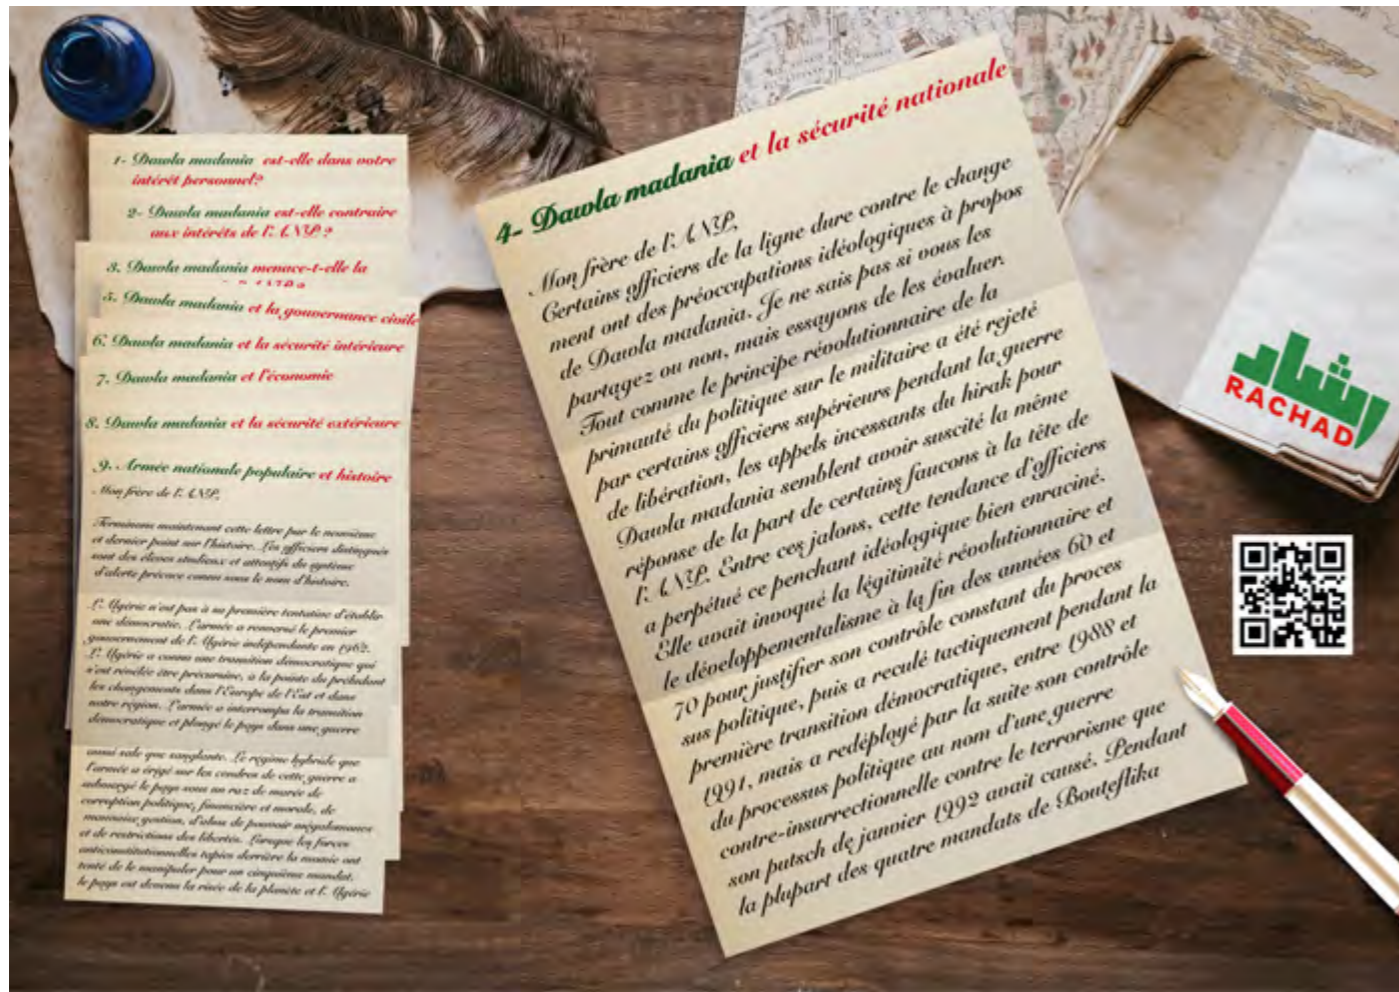 1- Dawla madania est-elle dans votre
intérêt personnel?
2- Dawla madania est-elle contraire
aux intérêts de l'ANP ?
3. Dawla madania menace-t-elle la
5. Dawla madania et la gouvernance civile
6. Dawla madania et la sécurité intérieure
7. Dawla madania et l'économie
8. Dawla madania et la sécurité extérieure
9. Armée nationale populaire et histoire
Mon frère de l'ANP,
Terminons maintenant cette lettre par le neuvième
et dernier point sur l'histoire. Les officiers distingués
sont des élèves studieux et attentifs du système
d'alerte précoce connu sous le nom d'histoire.
L'Algérie n'est pas à sa première tentative d'établir
une démocratie. L'armée a renversé le premier
gouvernement de l'Algérie indépendante en 1962.
L'Algérie a connu une transition démocratique qui
s'est révélée être précurseure, à la pointe du préludant
les changements dans l'Europe de l'Est et dans
notre région. L'armée a interrompu la transition
démocratique et plongé le pays dans une guerre
aussi sale que sanglante. Le régime hybride que
l'armée a érigé sur les cendres de cette guerre a
submergé le pays sous un raz de marée de
corruption politique, financière et morale, de
mauvaise gestion, d'abus de pouvoir mégalomanes
et de restrictions des libertés. Lorsque les forces
anticonstitutionnelles tapies derrière la momie ont
tenté de le manipuler pour un cinquième mandat,
le pays est devenu la risée de la planète et l'Algérie
4- Dawla madania et la sécurité nationale
Mon frère de l'ANP,
Certains officiers de la ligne dure contre le change
ment ont des préoccupations idéologiques à propos
de Dawla madania. Je ne sais pas si vous les
partagez ou non, mais essayons de les évaluer.
Tout comme le principe révolutionnaire de la
primauté du politique sur le militaire a été rejeté
par certains officiers supérieurs pendant la guerre
de libération, les appels incessants du hirak pour
Dawla madania semblent avoir suscité la même
réponse de la part de certains faucons à la tête de
l'ANP. Entre ces jalons, cette tendance d'officiers
a perpétué ce penchant idéologique bien enraciné.
Elle avait invoqué la légitimité révolutionnaire et
le développementalisme à la fin des années 60 et
70 pour justifier son contrôle constant du proces
sus politique, puis a reculé tactiquement pendant la
première transition démocratique, entre 1988 et
1991, mais a redéployé par la suite son contrôle
du processus politique au nom d'une guerre
contre-insurrectionnelle contre le terrorisme que
son putsch de janvier 1992 avait causé. Pendant
la plupart des quatre mandats de Bouteflika
رشاد
RACHAD